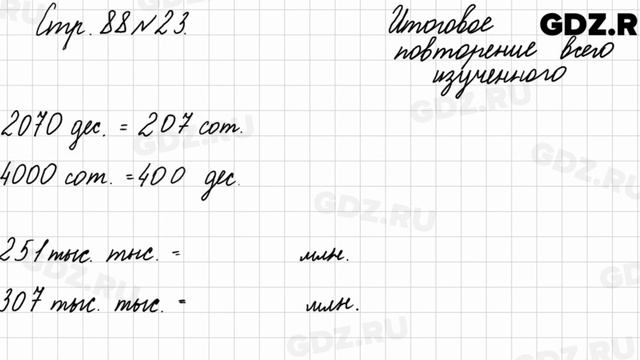 Стр. 88 № 23.
Итоговое
повторение всего
изученного
GDZ.R
2070 дес. = 207 сот.
4000 сот. = 400 дес.
251 тыс. тыс. = млн.
307 тыс. тыс. = млн.
GDZ.RU
GDZ.RU
GDZ.RU
GDZ.R
GDZ.RU
GDZ.RU